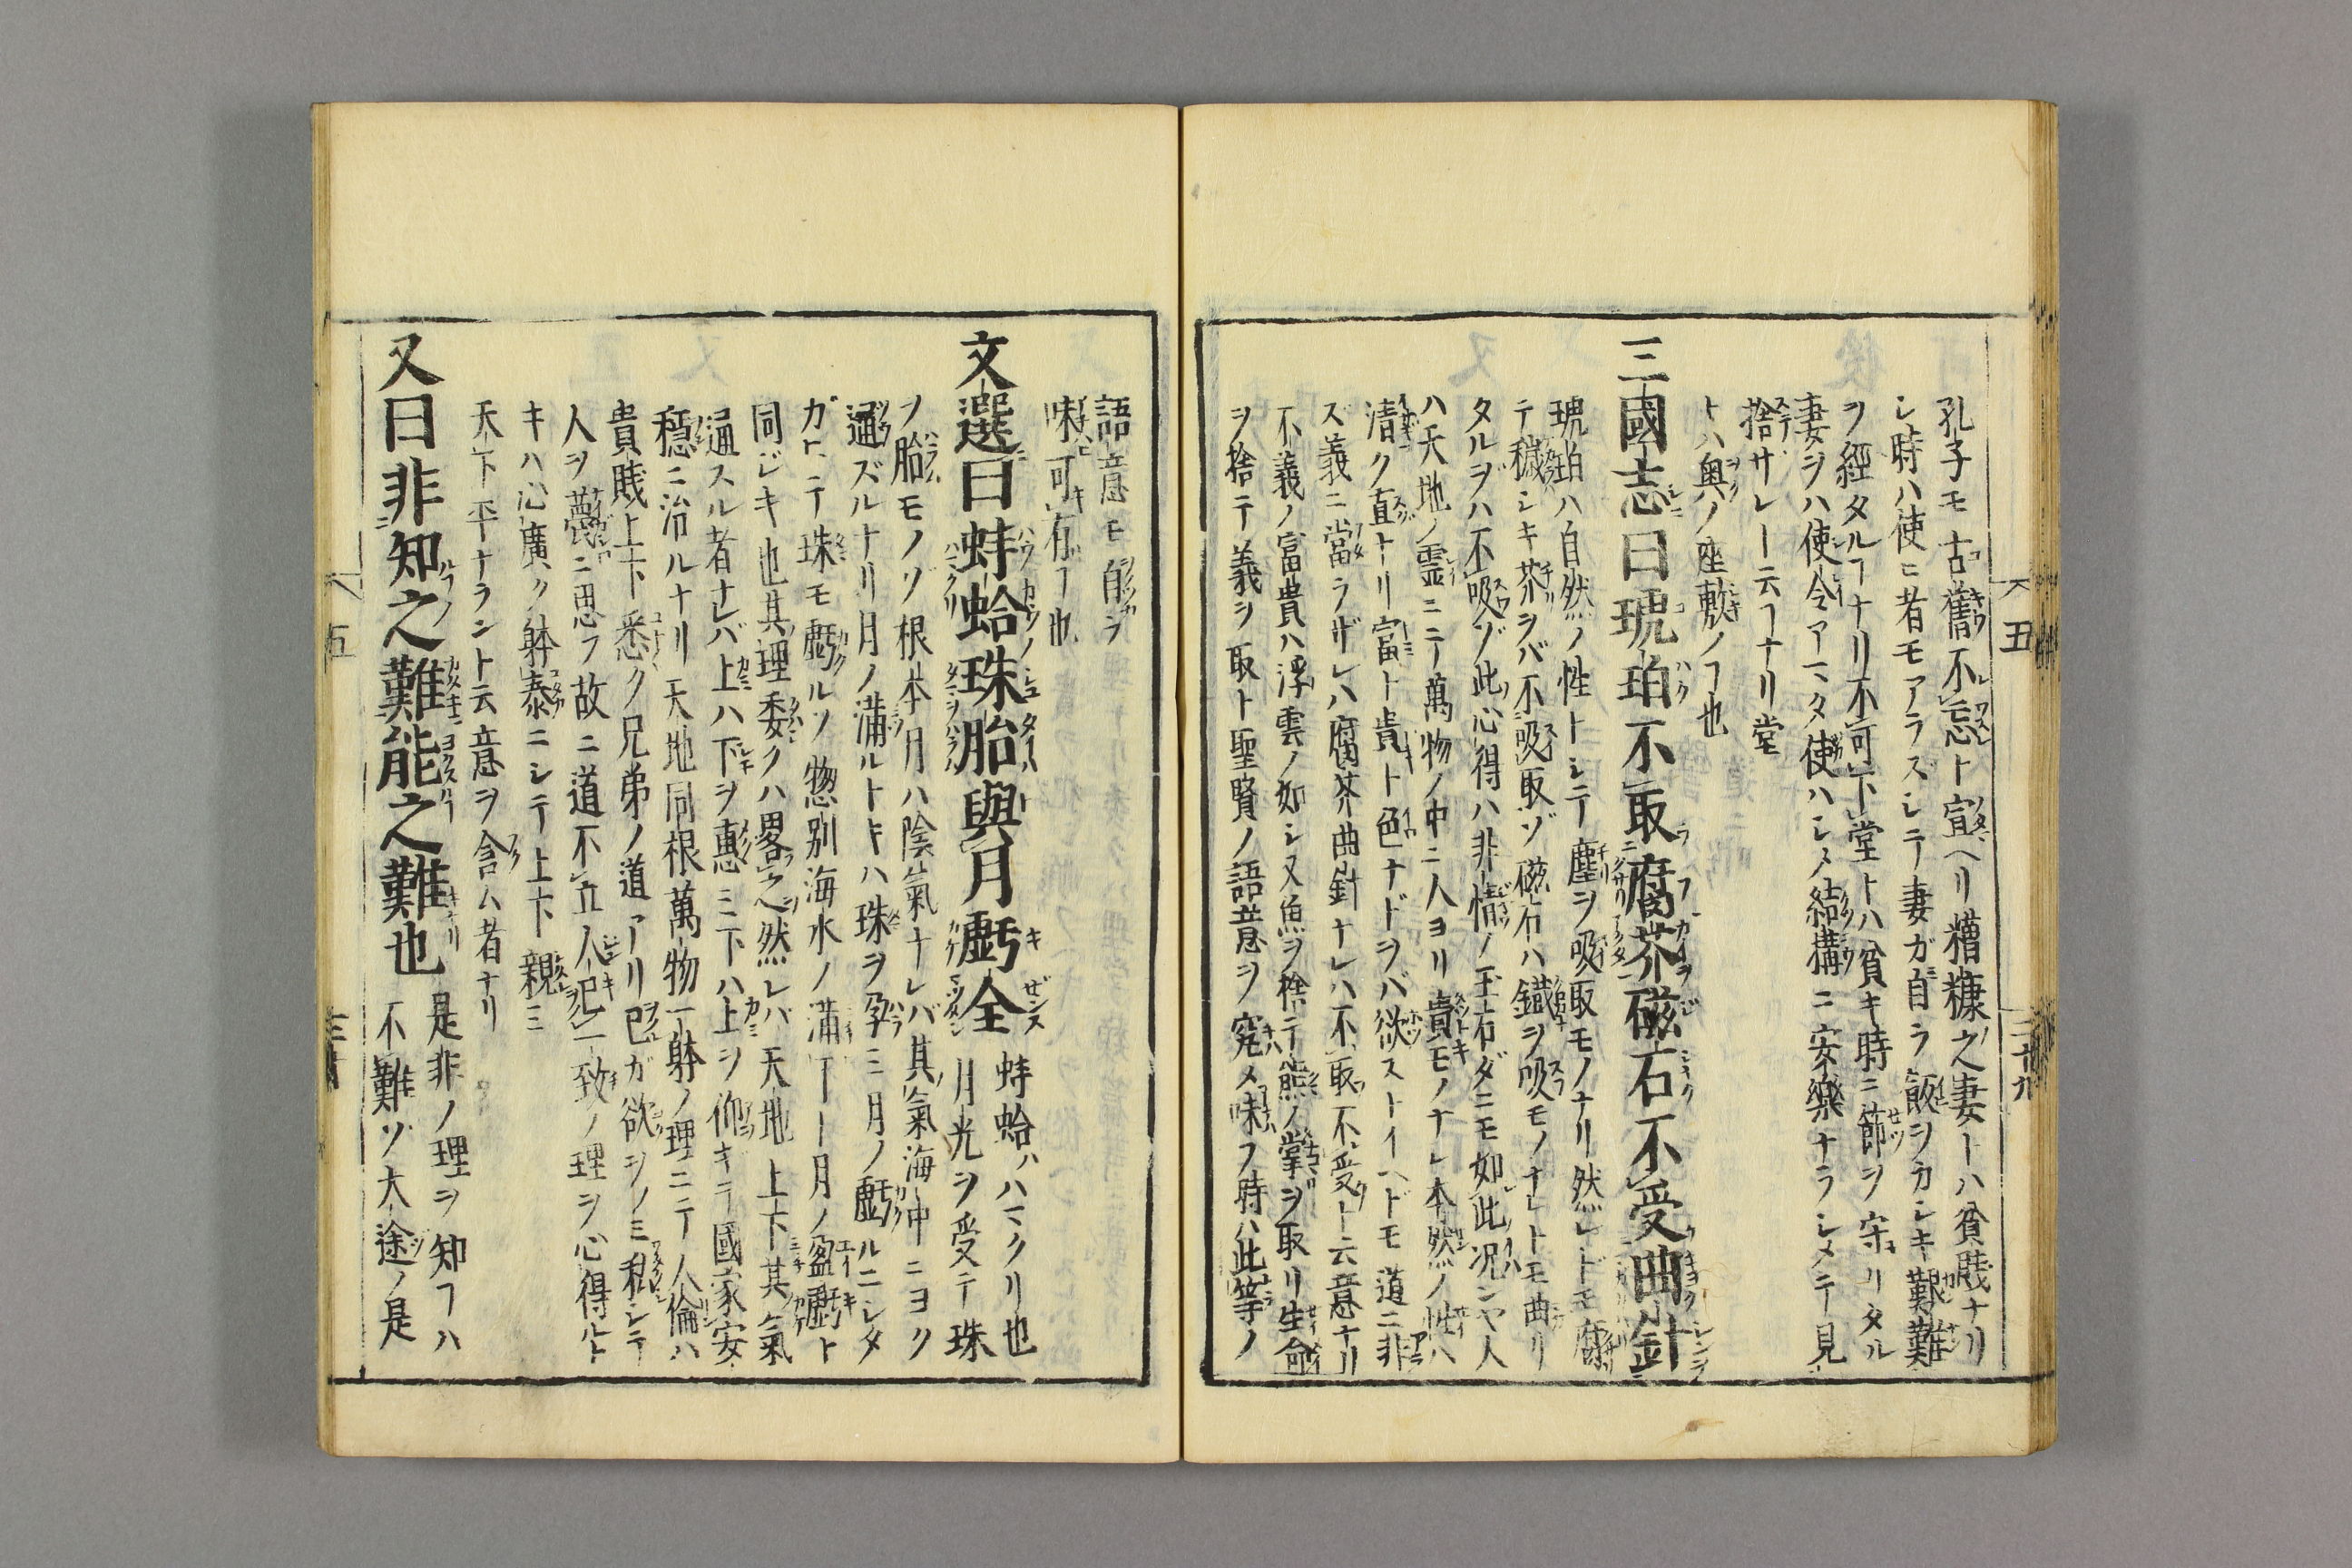 孔子モ古舊不忘ト宣ヘリ糟糠之妻トハ貧賤ナリ
シ時ハ使ヒ者モアラズシテ妻ガ自ラ飯ヲカシキ艱難
ヲ經タルヿナリ不可下堂トハ貧キ時ニ節ヲ守リタル
妻ヲハ使令アマタ使ハシメ結構ニ安樂ナラシメテ見
捨サレト云フヿナリ堂
トハ奥ノ座敷ノヿ也
三國志曰琥珀不取腐芥磁石不受曲針
琥珀ハ自然ノ性トシテ塵ヲ吸取モノナリ然レドモ腐
テ穢シキ芥ヲバ不吸取ゾ磁石ハ鐵ヲ吸モノナレトモ曲リ
タルヲハ不吸ゾ此心得ハ非情ノ玉石ダニモ如此況ンヤ人
ハ天地ノ霊ニテ萬物ノ中ニ人ヨリ貴モノナレ本然ノ性ハ
清ク直ナリ富ト貴ト色ナドヲバ欲ストイヘドモ道ニ非
ズ義ニ當ラザレハ腐芥曲針ナレハ不取不受ト云意ナリ
不義ノ富貴ハ浮雲ノ如シ又魚ヲ捨テ熊ノ掌ヲ取リ生命
ヲ捨テ義ヲ取ト聖賢ノ語意ヲ究メ味フ時ハ此等ノ
五
二十九
語意モ自ラ
味可有ヿ也
文選曰蚌蛤珠胎與月虧全
蚌蛤ハハマクリ也
月光ヲ受テ珠
ヲ胎モノゾ根本月ハ陰氣ナレバ其氣海中ニヨク
通ズルナリ月ノ滿ルトキハ珠ヲ孕ミ月ノ虧ルニシタ
ガヒテ珠モ虧ルソ惣別海水ノ滿干ト月ノ盈虧ト
同ジキ也其理委クハ畧之然レバ天地上下其氣
通スル者ナレバ上ハ下ヲ惠ミ下ハ上ヲ仰キテ國家安
穏ニ治ルナリ天地同根萬物一躰ノ理ニテ人倫ハ
貴賤上下悉ク兄弟ノ道アリ己ガ欲ヲノミ私シテ
人ヲ蔑ニ思フ故ニ道不立人己一致ノ理ヲ心得ルト
キハ心廣ク躰泰ニシテ上下親ミ
天下平ナラント云意ヲ含ム者ナリ
又曰非知之難能之難也
是非ノ理ヲ知ヿハ
不難ソ大途ノ是
五